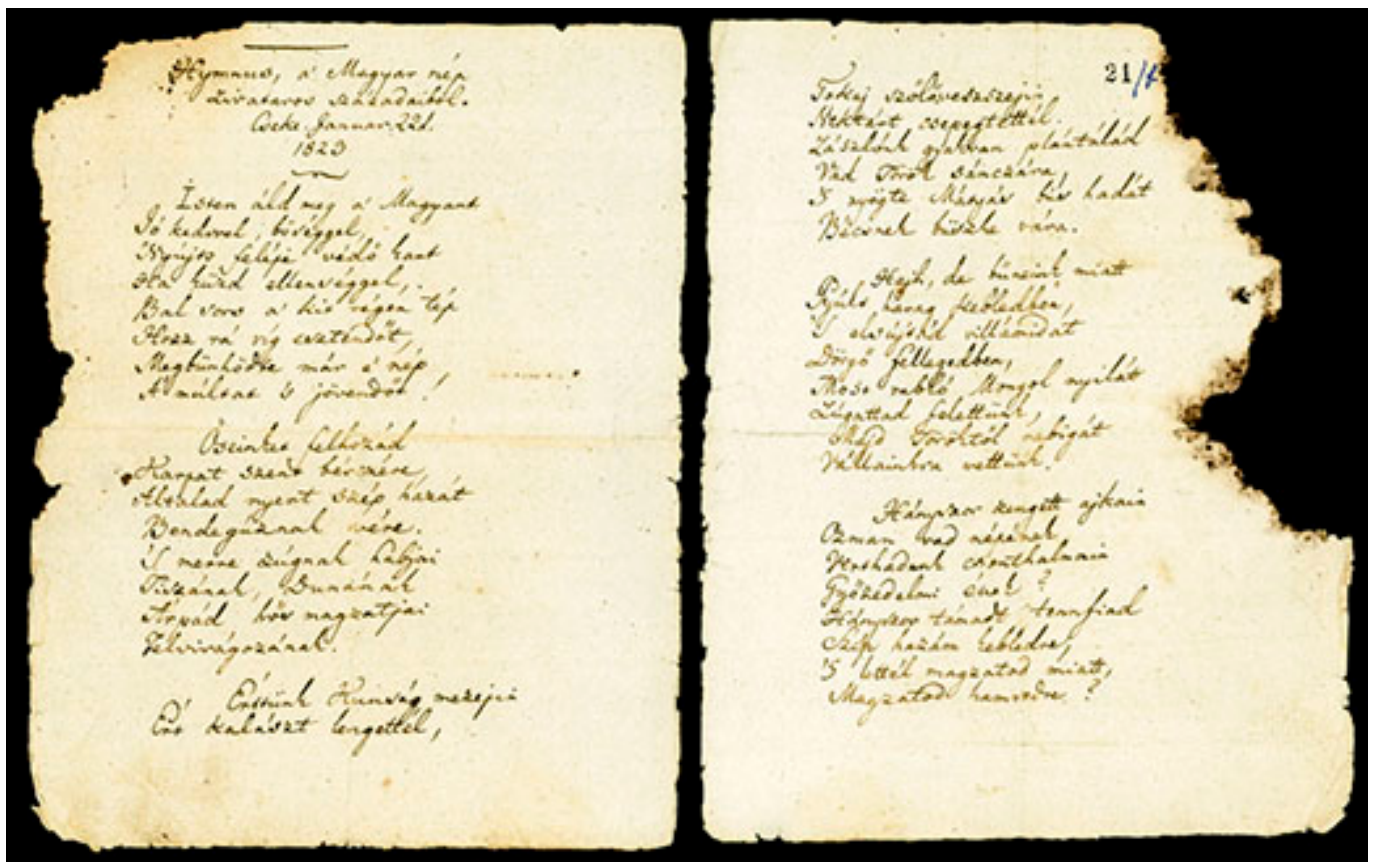 Hymnus, a' Magyar nép
zivataros századaiból.
Cseke Januar. 22d.
1823
Isten áld meg a' Magyart
Jó kedvvel, bőséggel,
Nyújts feléje védő kart
Ha küzd ellenséggel,
Bal sors a' kit régen tép
Hozz rá víg esztendőt,
Megbűnhödte már e' nép
A' múltat 's jövendőt!
Őseinket felhozád
Kárpát szent bérczére,
Általad nyert szép hazát
Bendegúznak vére.
'S merre zúgnak habjai
Tiszának, Dunának
Árpád hős magzatjai
Felvirágozának.
Értünk Kunság mezejin
Ért kalászt lengettél,
21/1
Tokaj szőlővesszejin
Nektárt csepegtettél.
Zászlónk gyakran plántálád
Vad Török sánczára,
'S nyögte Mátyás bús hadát
Bécsnek büszke vára.
Hejh, de bűneink miatt
Gyúlt harag kebledben,
'S elsújtád villámidat
Dörgő fellegedben,
Most rabló Mongol nyilát
Zúgattad felettünk,
Majd Töröktől rabigát
Vállainkra vettünk.
Hányszor zengett ajkain
Ozman vad népének
Vert hadunk csonthalmain
Győzedelmi ének?
Hányszor támadt tenn fiad
Szép hazám kebledre,
'S lettél magzatod miatt,
Magzatod hamvedre?